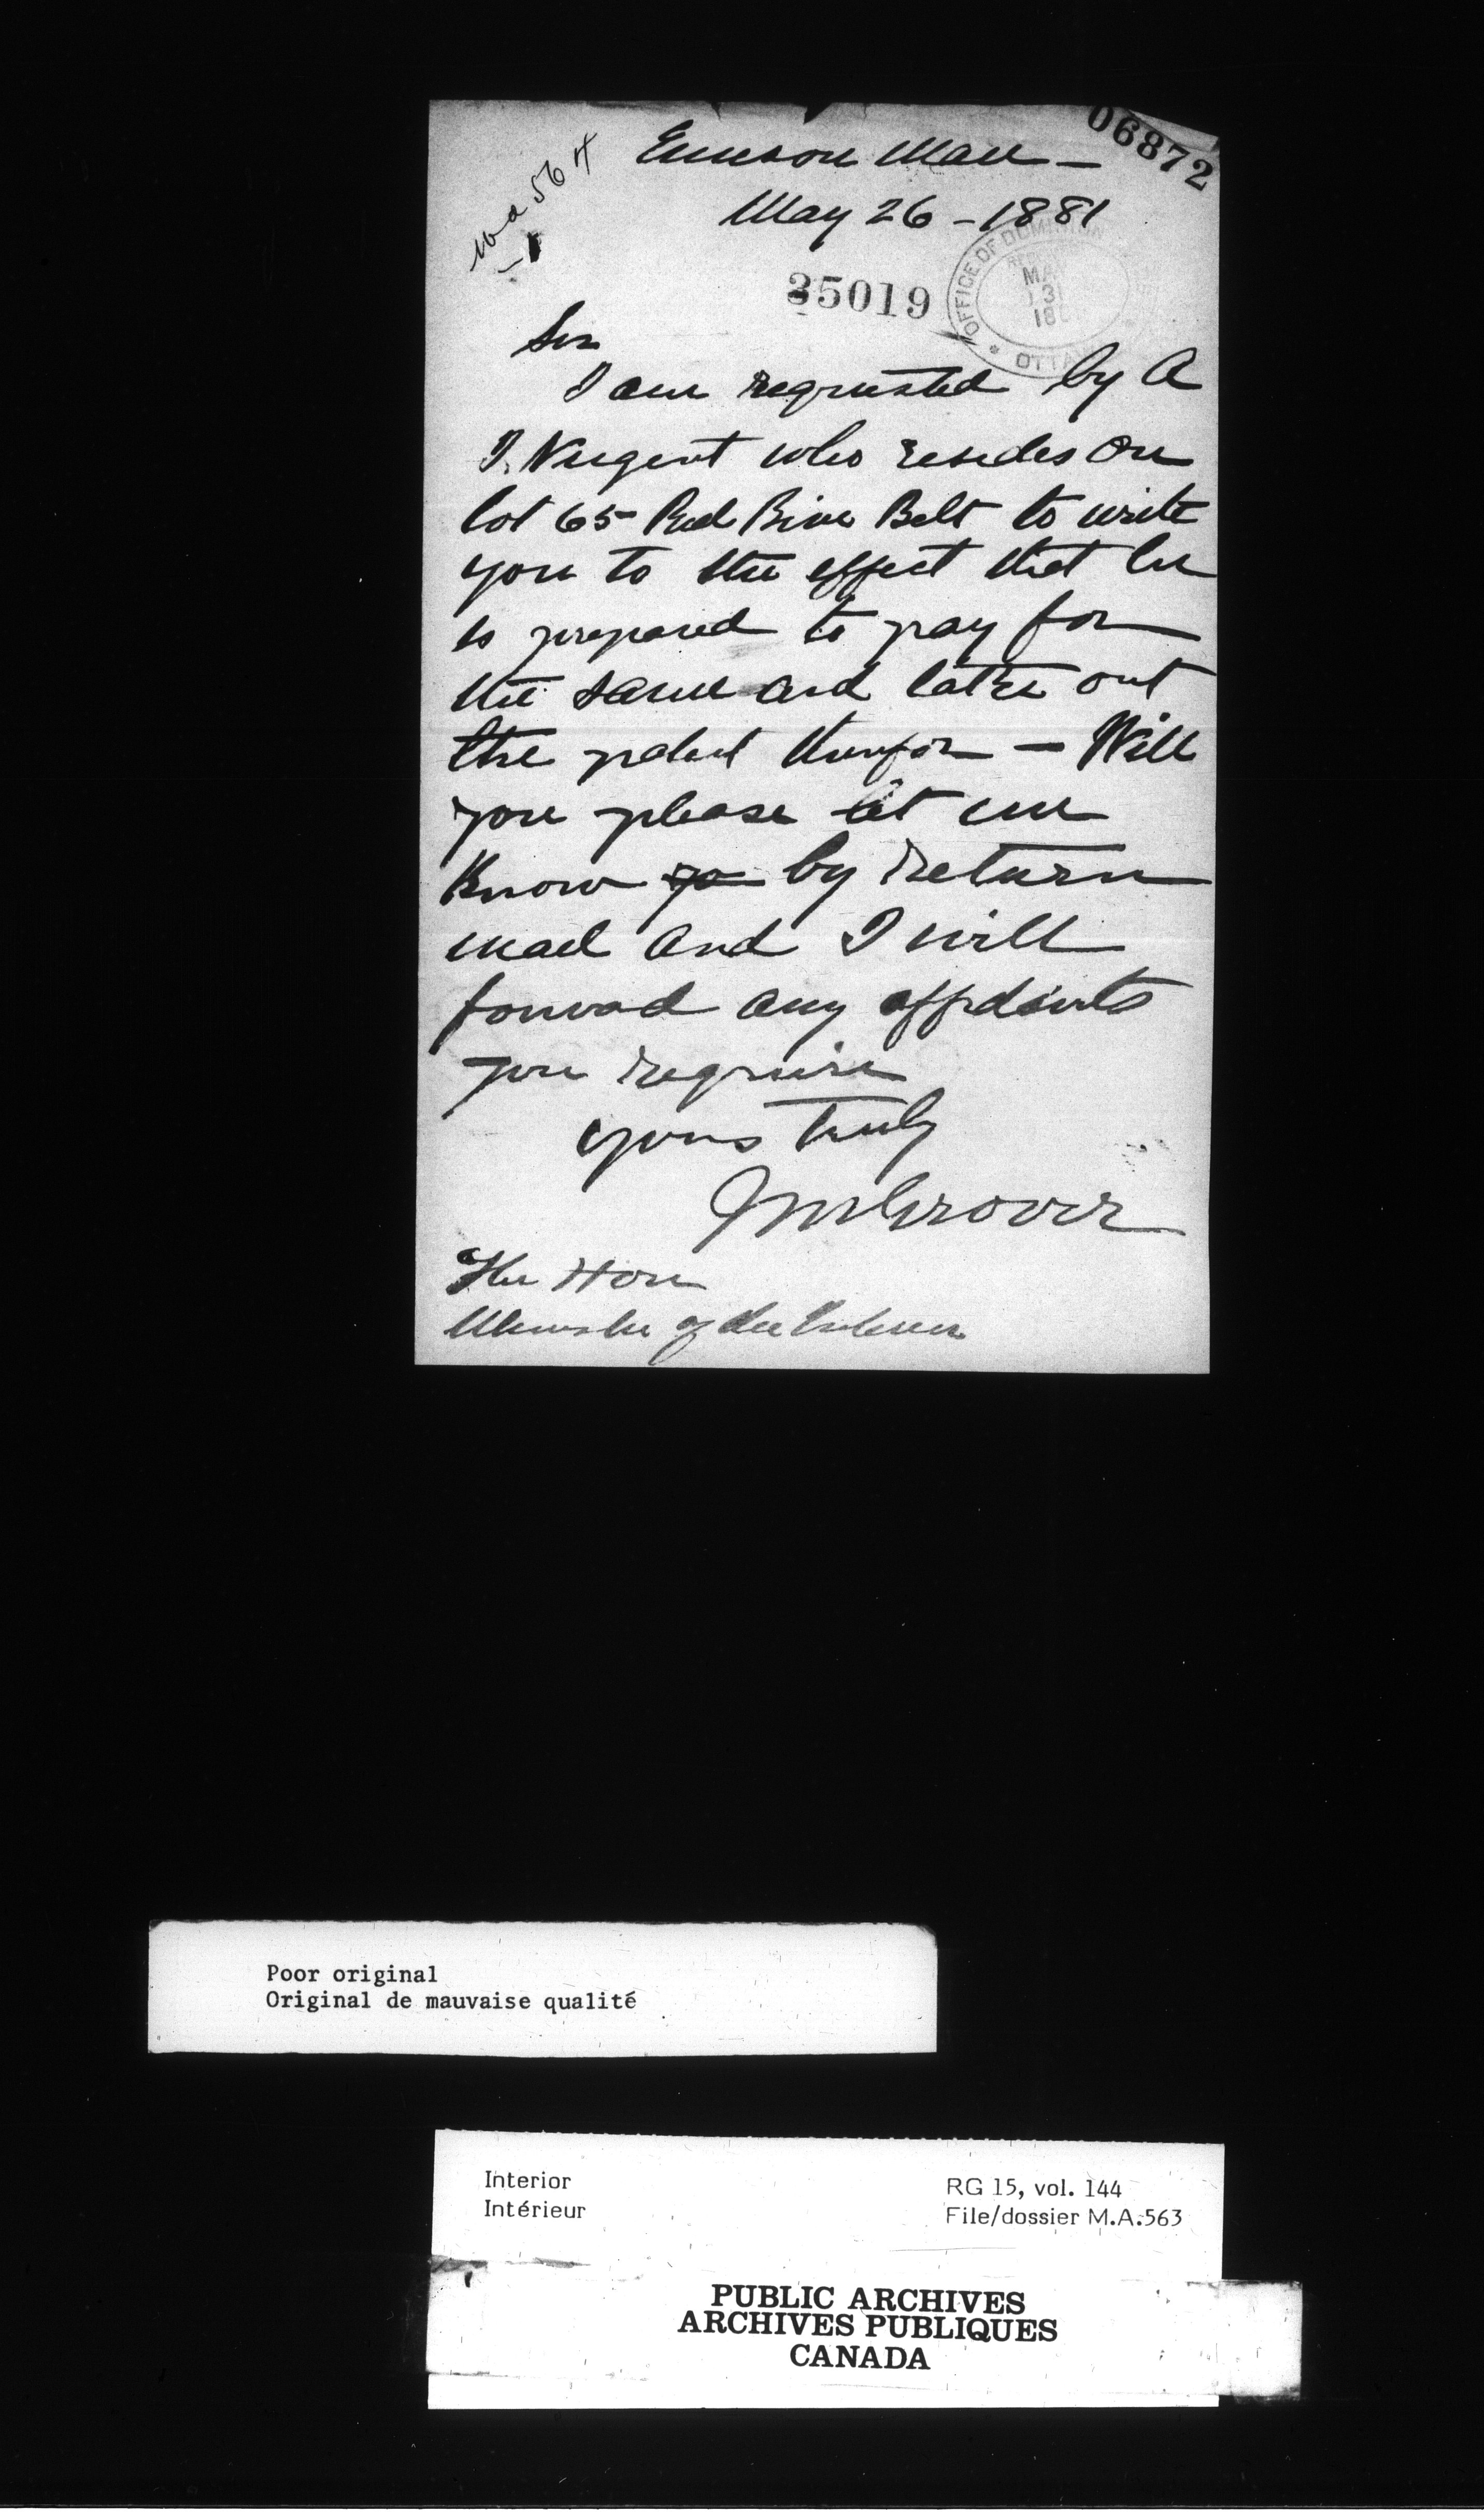 06872
Emerson Man –
May 26 – 1881
35019
OFFICE OF DOMINION
MA
31
18
OTTAWA
Sir
I am requested by A
J. Nugent who resides on
lot 65 Red River Belt to write
you to the effect that he
is prepared to pay for
the same and take out
the patent therefor – Will
you please let me
know by return
mail and I will
forward any affidavits
you require
yours truly
The Hon
Minister of the Interior
Poor original
Original de mauvaise qualité
Interior
Intérieur
RG 15, vol. 144
File/dossier M.A.563
PUBLIC ARCHIVES
ARCHIVES PUBLIQUES
CANADA